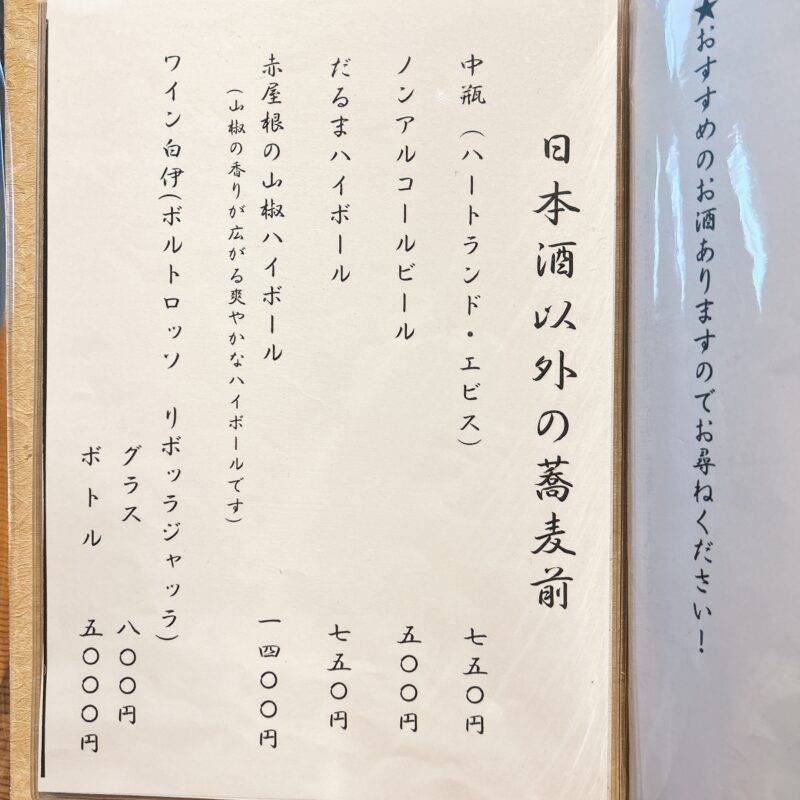 ★おすすめのお酒ありますのでお尋ねください！
日本酒以外の蕎麦前
中瓶（ハートランド・エビス） 七五〇円
ノンアルコールビール 五〇〇円
だるまハイボール 七五〇円
赤屋根の山椒ハイボール 一四〇〇円
（山椒の香りが広がる爽やかなハイボールです）
ワイン白伊（ボルトロッソ　リボッラジャッラ）
グラス 八〇〇円
ボトル 五〇〇〇円